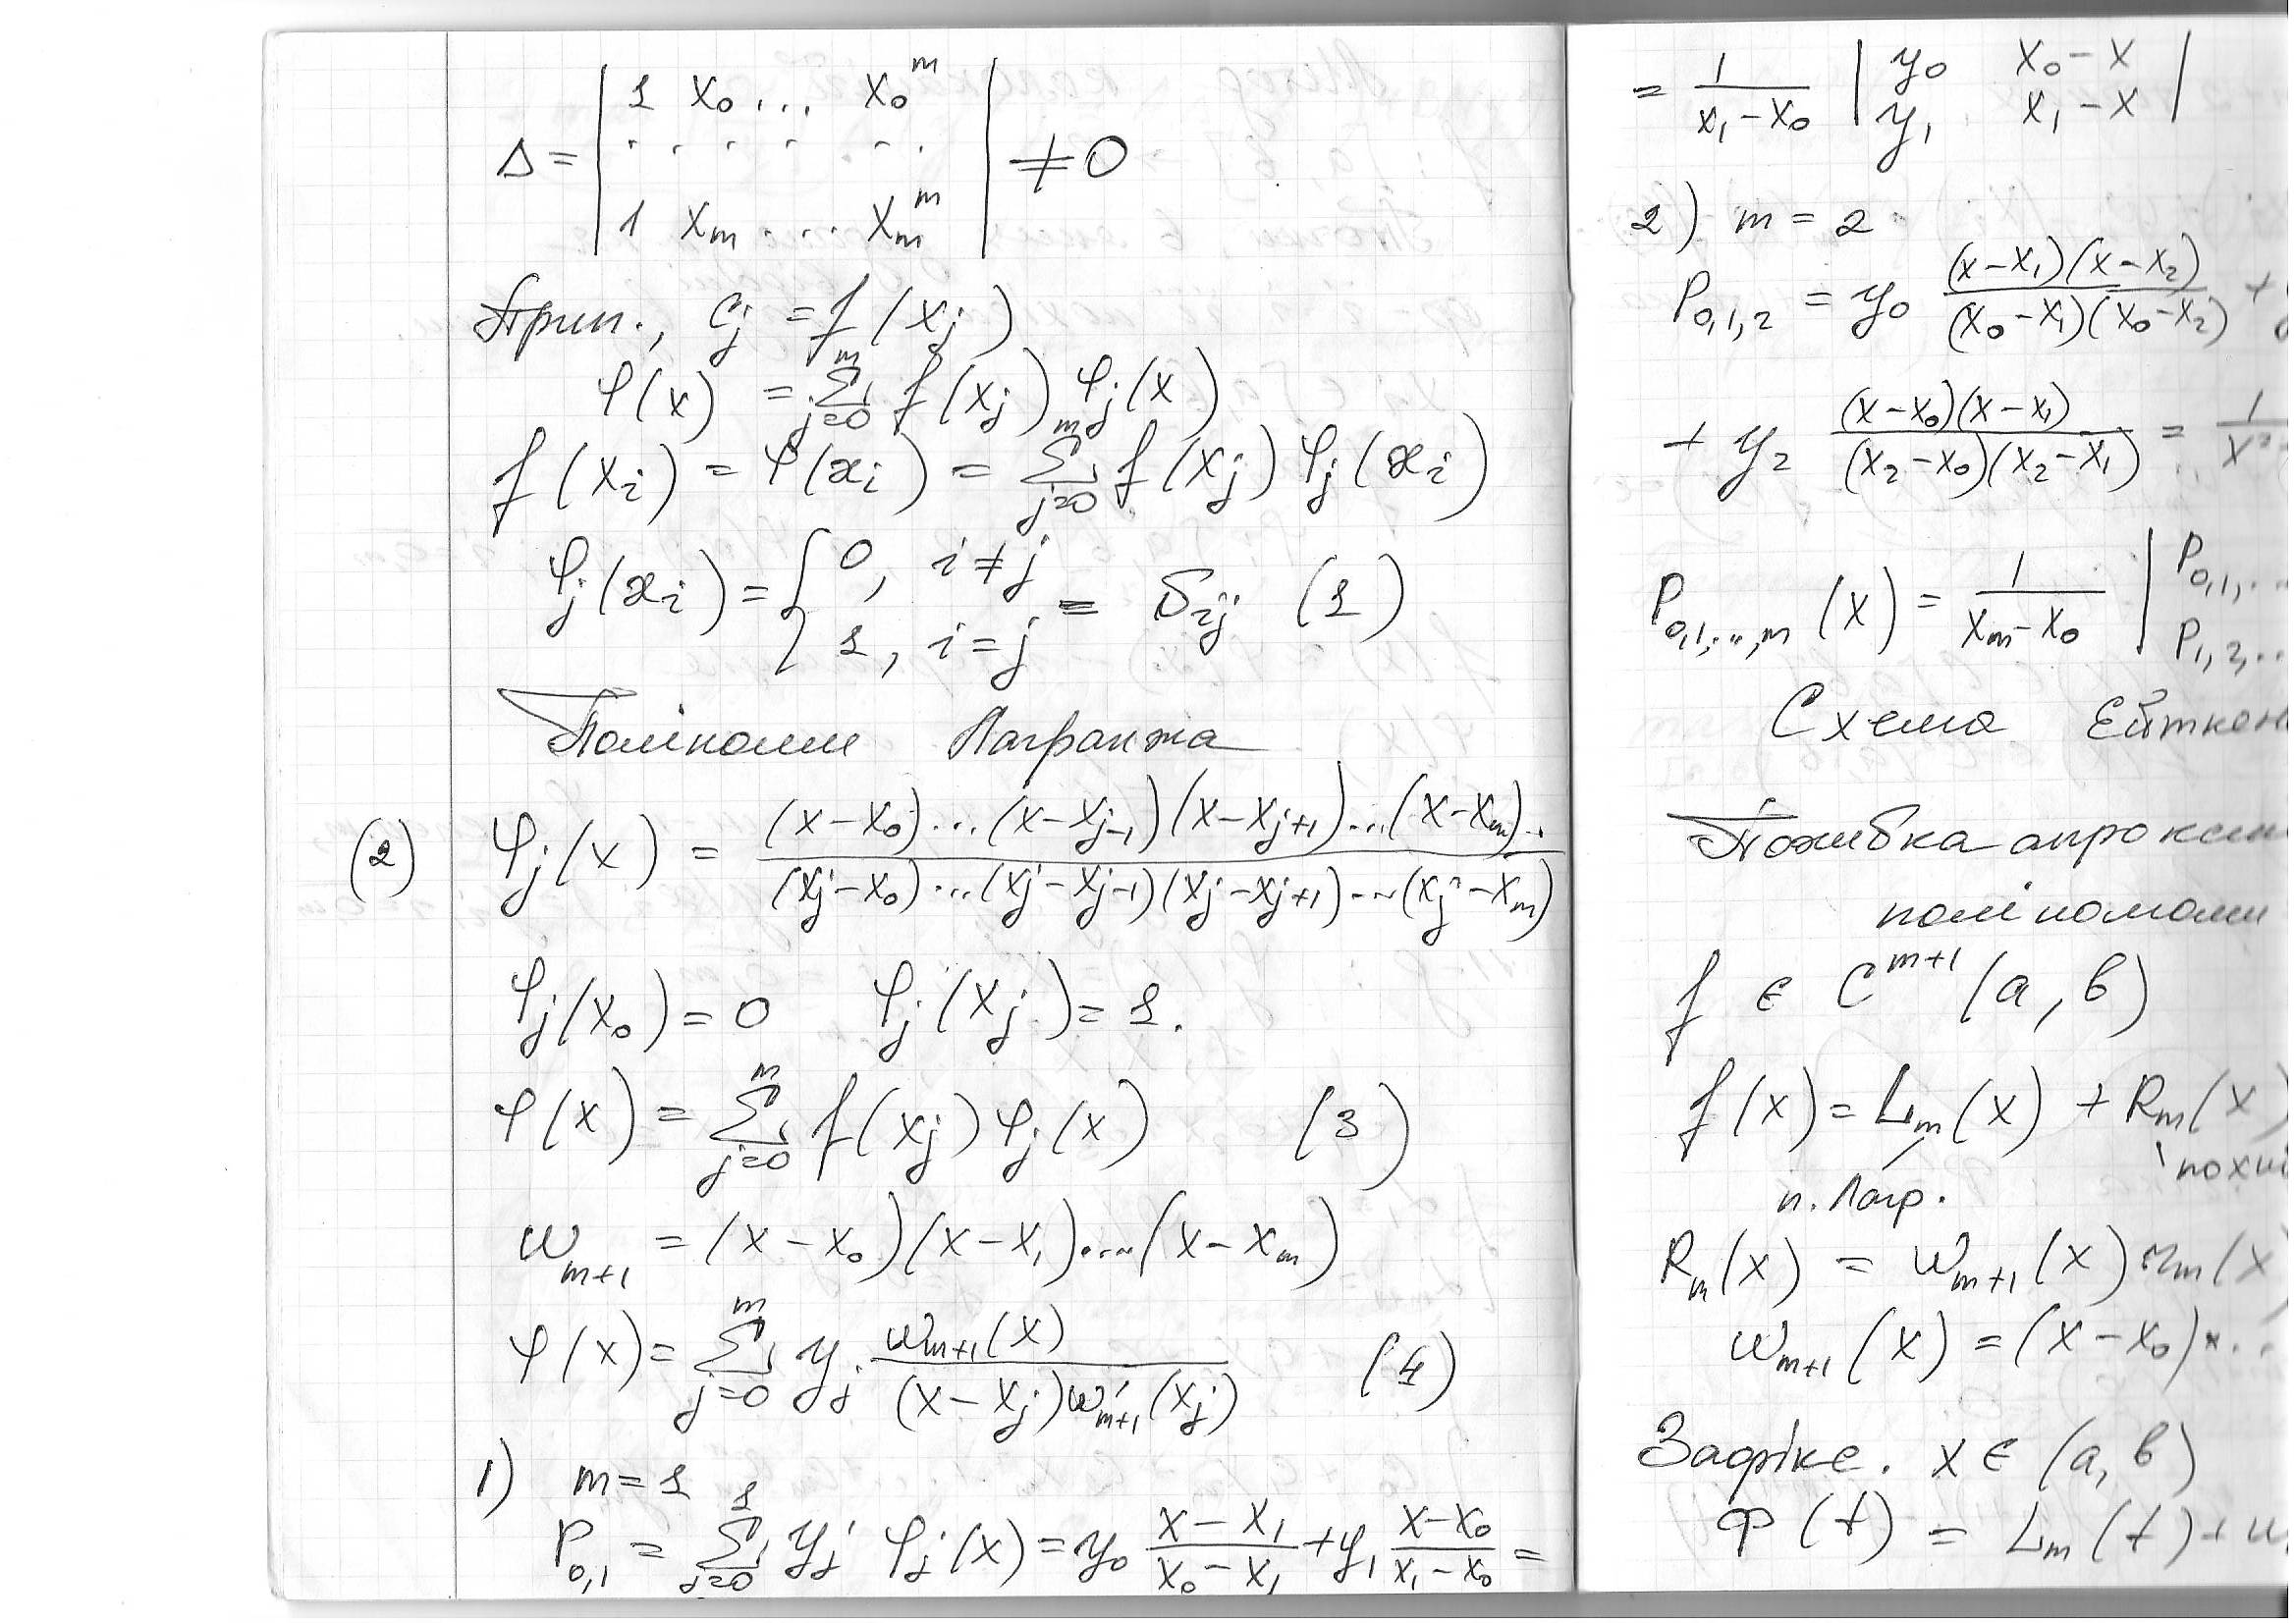 Δ = | 1 x₀ ... x₀ᵐ |
| . . . . . . | ≠ 0
| 1 xₘ .... xₘᵐ |
Прип., cⱼ = f(xⱼ)
φ(x) = ∑ⱼ₌₀ᵐ f(xⱼ) φⱼ(x)
f(xᵢ) = φ(xᵢ) = ∑ⱼ₌₀ᵐ f(xⱼ) φⱼ(xᵢ)
φⱼ(xᵢ) = { 0, i ≠ j
1, i = j = δᵢⱼ (1)
Поліноми Лагранжа
(2) φⱼ(x) = (x-x₀)...(x-xⱼ₋₁)(x-xⱼ₊₁)...(x-xₘ) / (xⱼ-x₀)...(xⱼ-xⱼ₋₁)(xⱼ-xⱼ₊₁)...(xⱼ-xₘ)
φⱼ(x₀) = 0 φⱼ(xⱼ) = 1.
φ(x) = ∑ⱼ₌₀ᵐ f(xⱼ) φⱼ(x) (3)
ωₘ₊₁ = (x-x₀)(x-x₁)....(x-xₘ)
φ(x) = ∑ⱼ₌₀ᵐ yⱼ ωₘ₊₁(x) / (x-xⱼ)ω'ₘ₊₁(xⱼ) (4)
1) m = 1
P₀,₁ = ∑ⱼ₌₀¹ yⱼ φⱼ(x) = y₀ (x-x₁)/(x₀-x₁) + y₁ (x-x₀)/(x₁-x₀) =
= 1/(x₁-x₀) | y₀ x₀-x |
| y₁ x₁-x |
2) m = 2
P₀,₁,₂ = y₀ (x-x₁)(x-x₂) / (x₀-x₁)(x₀-x₂) +
+ y₂ (x-x₀)(x-x₁) / (x₂-x₀)(x₂-x₁) = 1/x₂
P₀,₁,..,ₘ(x) = 1/(xₘ-x₀) | P₀,₁,..
| P₁,₂,..
Схема Ейткен
Похибка апроксим
поліномами
f ∈ Cᵐ⁺¹(a, b)
f(x) = Lₘ(x) + Rₘ(x)
п. Лагр. похи
Rₘ(x) = ωₘ₊₁(x) rₘ(x)
ωₘ₊₁(x) = (x-x₀)...
Зафікс. x ∈ (a, b)
Ф(t) = Lₘ(t) + ω